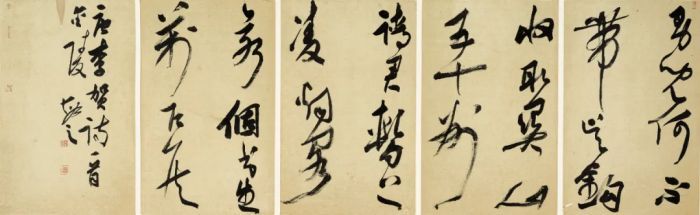 男兒何不
帶吳鉤
收取關山
五十州
請君暫上
凌烟閣
若個書生
萬户侯
唐李賀詩一首
金陵